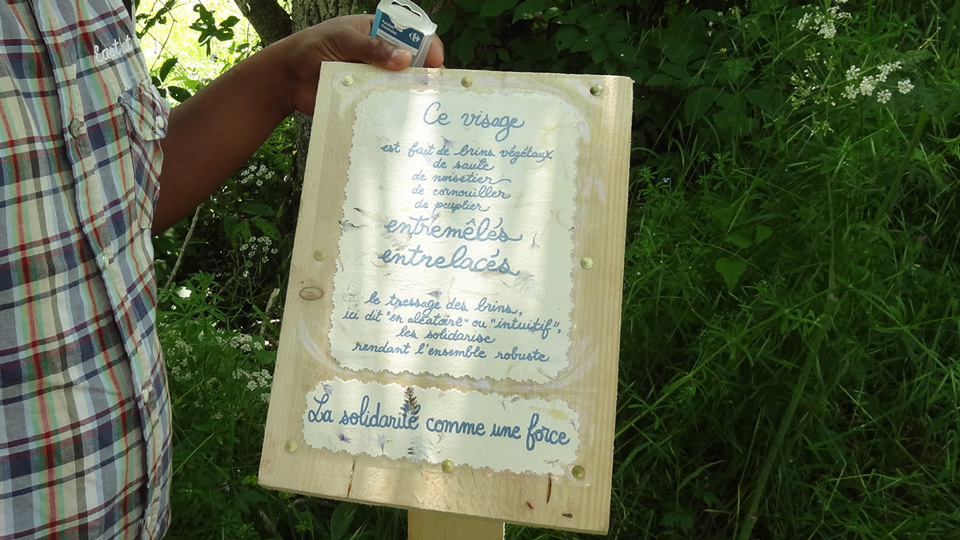 Ce visage
est fait de brins végétaux
de saule
de noisetier
de cornouiller
de peuplier
entremêlés
entrelacés
le tressage des brins,
ici dit "en aléatoire" ou "intuitif",
les solidarise
rendant l'ensemble robuste
La solidarité comme une force